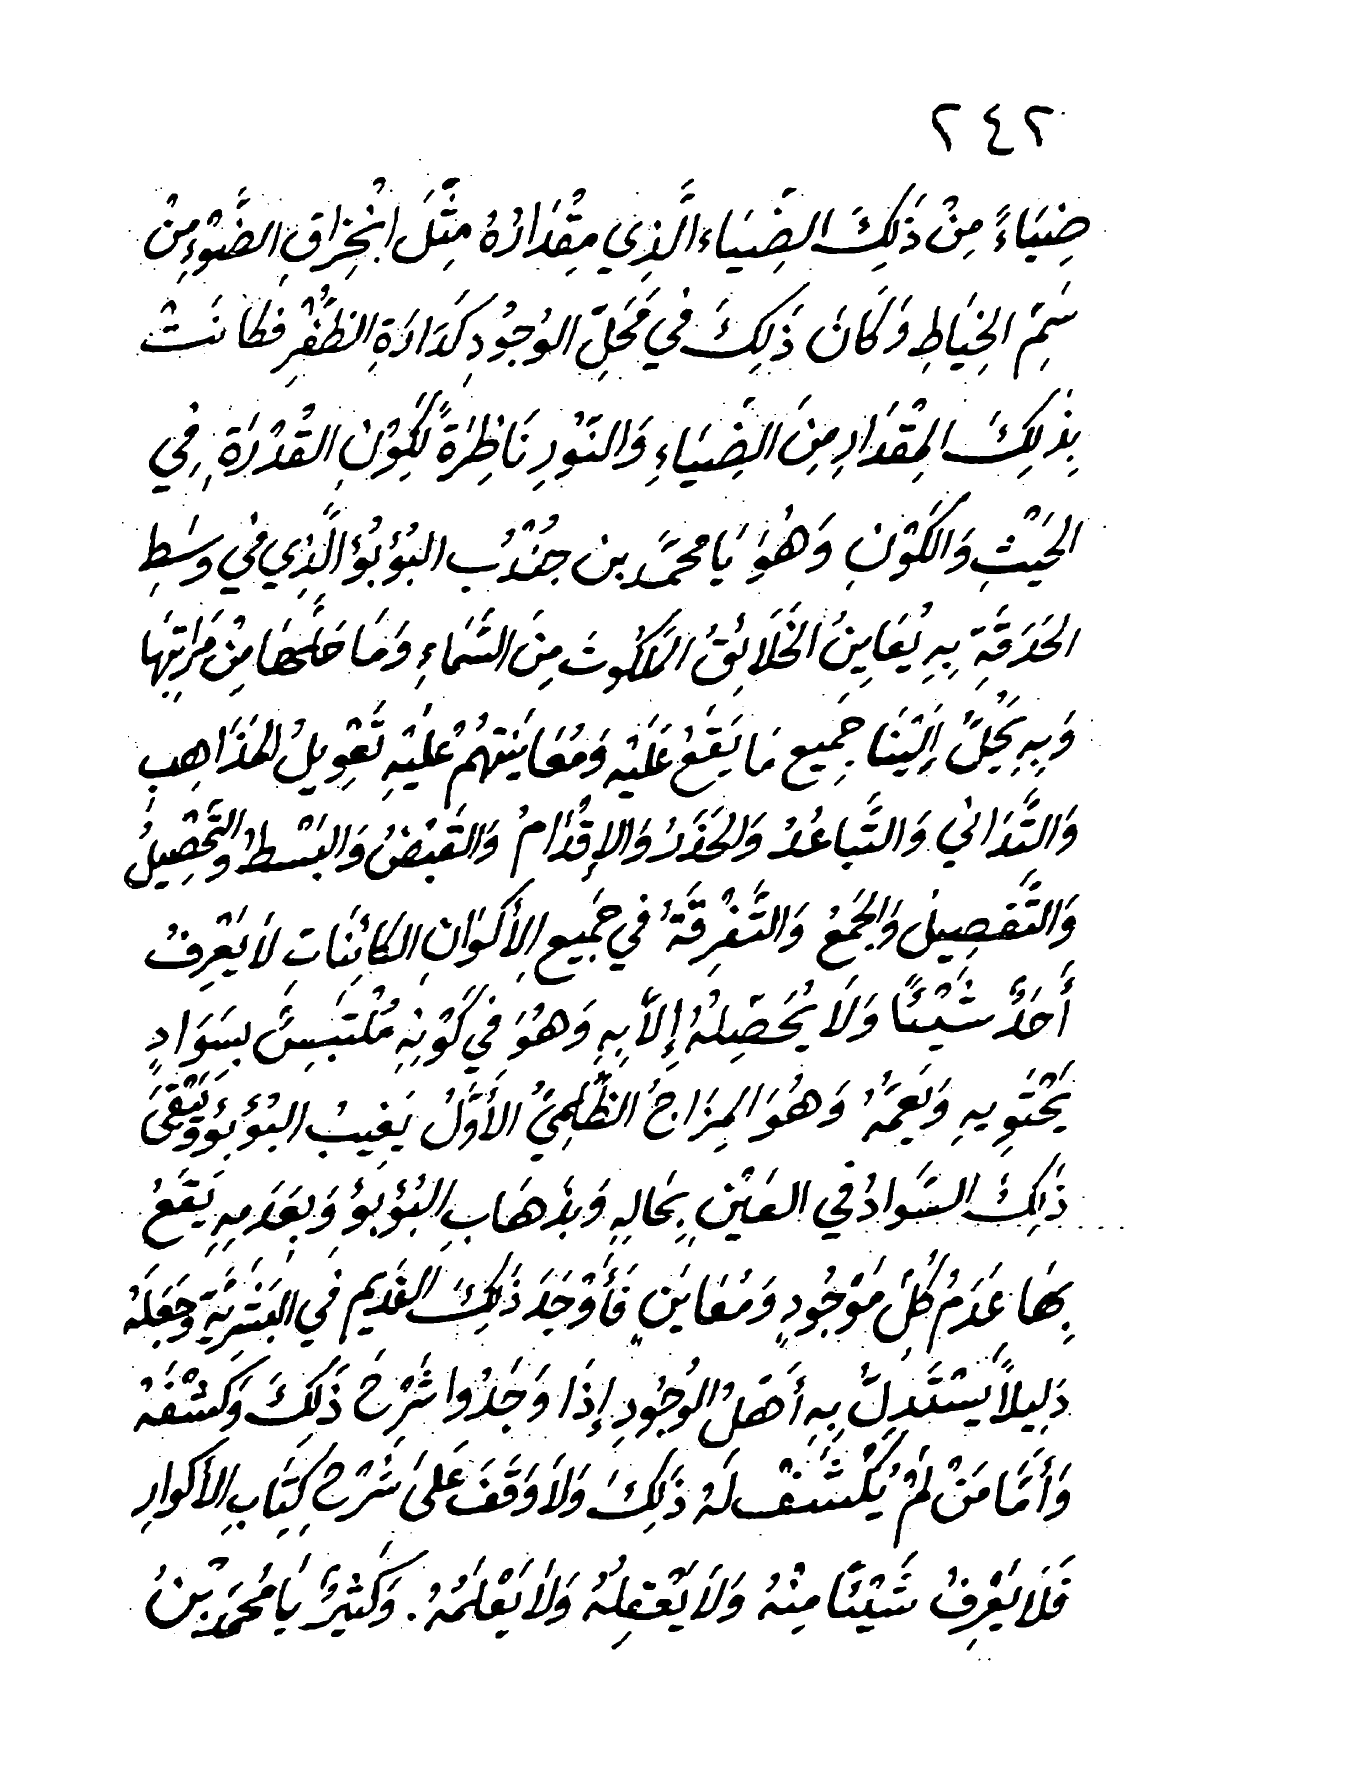 ٢٤٢
ضِيَاءً مِنْ ذَلِكَ الضِّيَاء الَّذِي مِقْدَارُهُ مِثْلَ انْخِرَاقِ الضَّوْءِ مِنْ
سَمِّ الخِيَاطِ وَكَانَ ذَلِكَ فِي مَحَلِّ الوُجُودِ كَدَارَةِ الظُّفْرِ فَكَانَتْ
بِذَلِكَ المِقْدَارِ مِنَ الضِّيَاءِ وَالنُّورِ نَاظِرَةً لِكَوْنِ القُدْرَةِ فِي
الحَيْثِ وَالكَوْنِ وَهُوَ يَا محمَّد بن جُنْدُب البُؤْبُؤ الَّذِي فِي وسَطِ
الحَدَقَةِ بِهِ يُعَايِنُ الخَلَائِقُ المَلَكُوتَ مِنَ السَّمَاءِ وَمَا حَلَّهَا مِنْ مَرَاتِبِهَا
وَبِهِ يُحِلُّ إِلَيْنَا جَمِيع مَا يَقَعُ عَلَيْهِ وَمُعَايَنَتِهُمْ عَلَيْهِ تَعْوِيلُ المَذَاهِبِ
وَالتَّدَانِي وَالتَّبَاعُدُ وَالحَذَرُ وَالإِقْدَامُ وَالقَبْضُ وَالبَسْطُ وَالتَّحْصِيلُ
وَالتَّفصِيل وَالجَمْعُ وَالتَّفْرِقَةُ فِي جَمِيعِ الأَكْوَانِ الكَائِنَاتِ لاَ يَعْرِفُ
أَحَدٌ شَيْئاً وَلَا يُحَصِّلهُ إِلاَّ بِهِ وَهُوَ فِي كَوْنِهِ مُلْتَبِسٌ بِسَوَادٍ
يَحْتَوِيهِ وَيَعمَّهُ وَهُوَ المِزَاجُ الظُّلمِيُّ الأَوَّلُ يَغِيبُ البُؤْبُؤُ وَيَبْقَى
ذَلِكَ السَّوَادُ فِي العَيْنِ بِحَالِهِ وَبِذَهَابِ البُؤْبُؤِ وَبِعَدَمِهِ يَقَعُ
بِهَا عَدَمُ كُلِّ مَوْجُودٍ وَمُعَايَنٍ فَأَوْجَدَ ذَلِكَ القَدِيمِ فِي البَشَرِيَّةِ وجَعَلَهُ
دَلِيلاً يَسْتَدِلُّ بِهِ أَهْلُ الوُجُودِ إِذَا وَجَدُوا شَرْحَ ذَلِكَ وَكَشْفَهُ
وَأَمَّا مَنْ لَمْ يُكْشَفْ لَهُ ذَلِكَ وَلاَ وَقَفَ عَلَى شَرْحِ كِتَابِ الأَكْوَارِ
فَلَا يَعْرِفُ شَيْئاً مِنْهُ وَلَا يَعْقِلَهُ وَلَا يَعْلَمُهُ. وَكَثِيرٌ يَا مُحَمَّد بْنُ